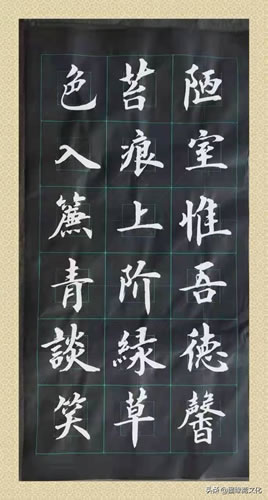 陋室惟吾德馨
苔痕上阶緑草
色入簾青談笑
头条 @文化